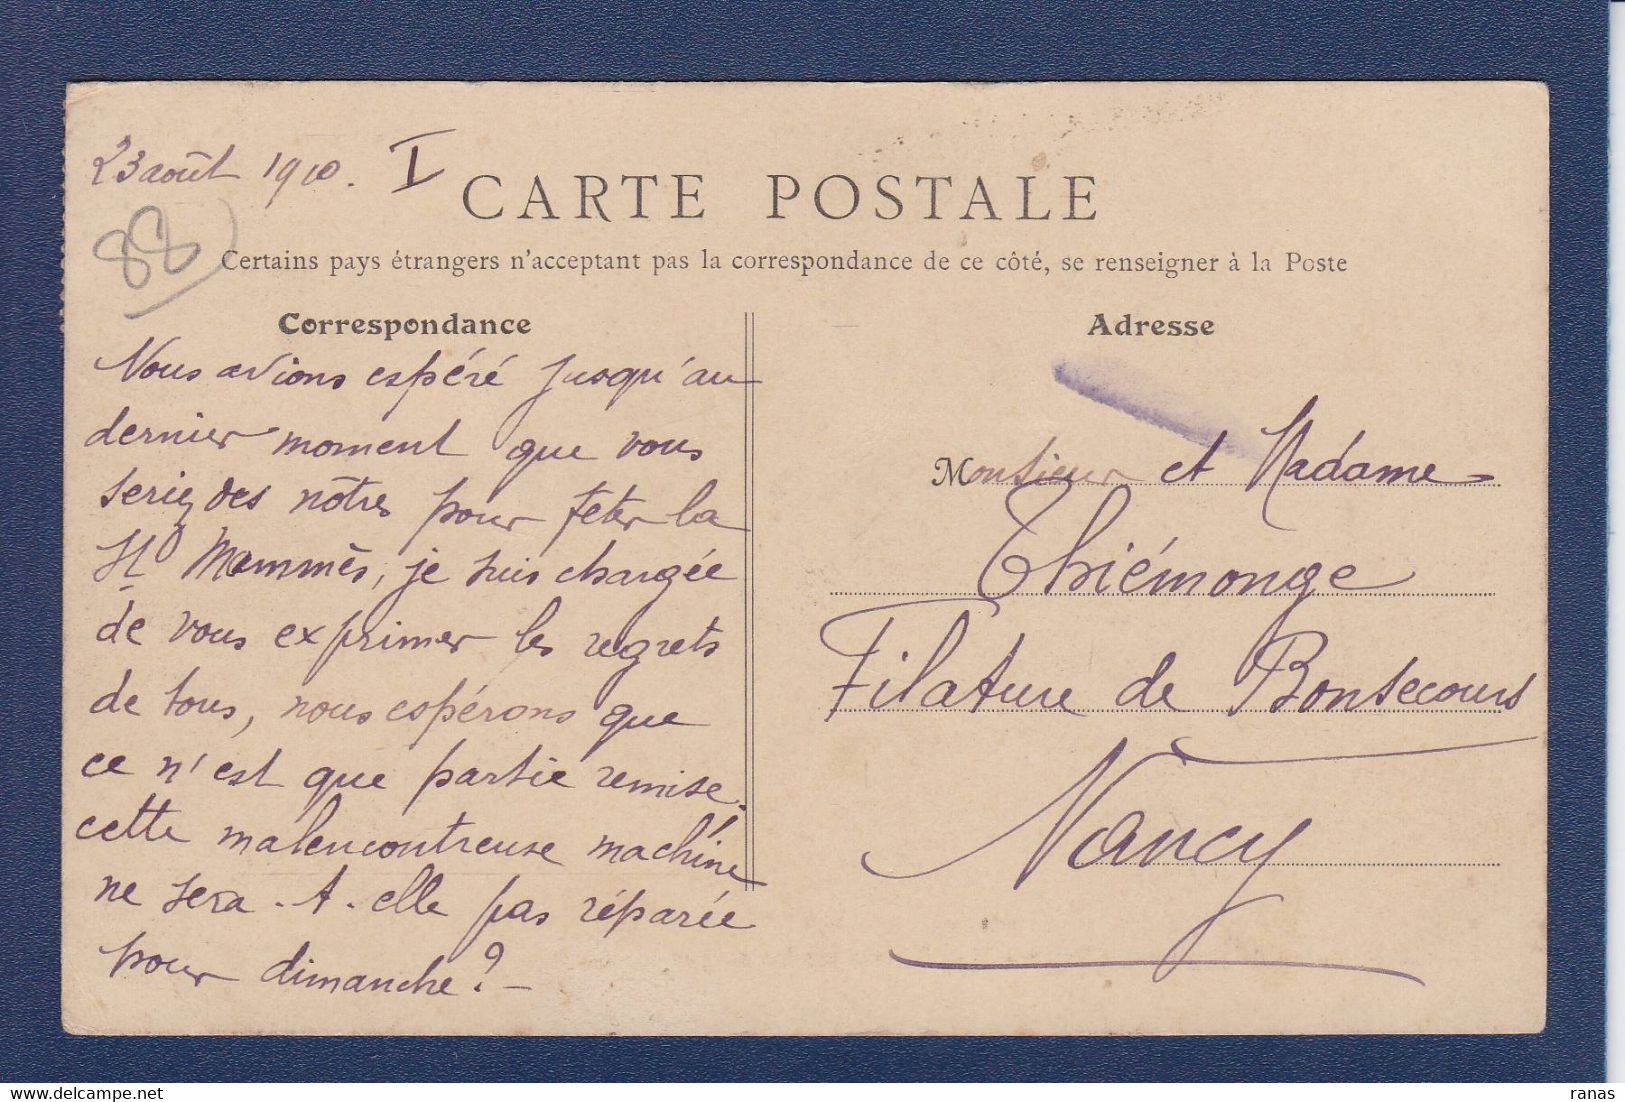 23 août 1910. I
88
CARTE POSTALE
Certains pays étrangers n'acceptant pas la correspondance de ce côté, se renseigner à la Poste
Correspondance
Nous avions espéré jusqu'au
dernier moment que vous
seriez des nôtres pour fêter la
St Mammès, je suis chargée
de vous exprimer les regrets
de tous, nous espérons que
ce n'est que partie remise.
cette malencontreuse machine
ne sera-t-elle pas réparée
pour dimanche? -
Adresse
Monsieur et Madame
Thiémonge
Filature de Bonsecours
Nancy
ranas